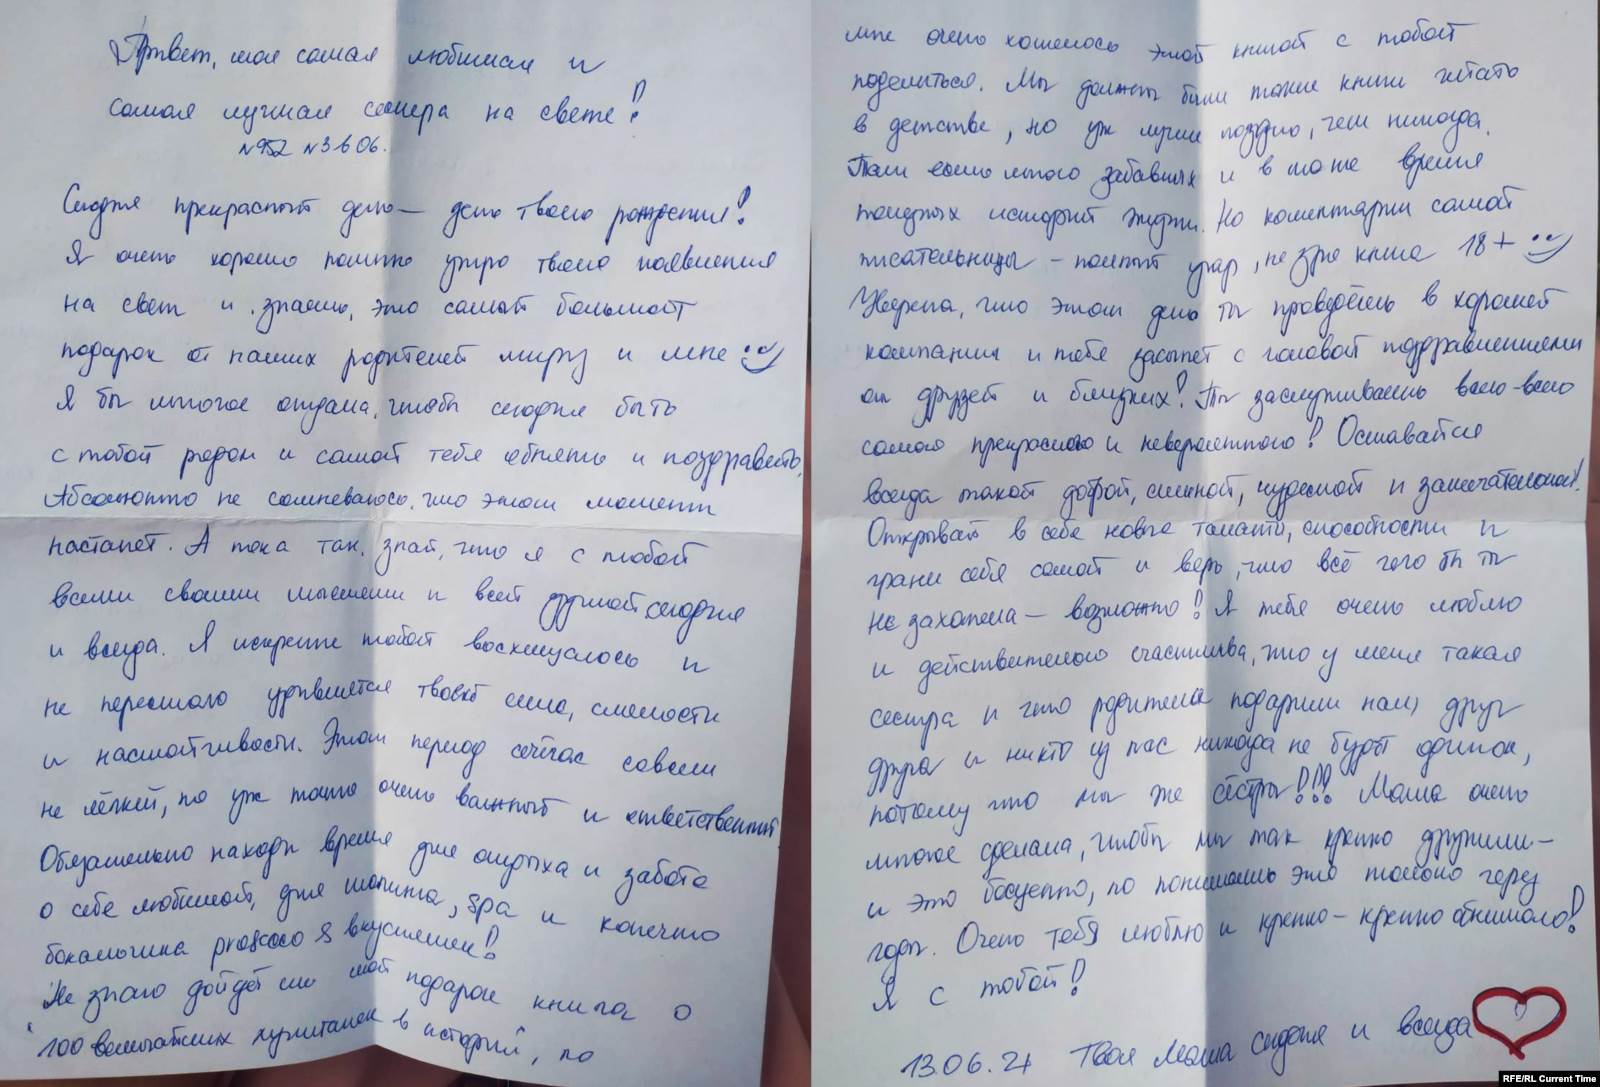 Привет, моя самая любимая и
самая лучшая сестра на свете!
№952 №3 6 06.
Сегодня прекрасный день — день твоего рождения!
Я очень хорошо помню утро твоего появления
на свет и, знаешь, это самый большой
подарок от наших родителей миру и мне
Я бы многое отдала, чтобы сегодня быть
с тобой рядом и самой тебя обнять и поздравить.
Абсолютно не сомневаюсь, что этот момент
настанет. А пока так, знай, что я с тобой
всеми своими мыслями и всей душой сегодня
и всегда. Я искренне тобой восхищаюсь и
не перестаю удивляться твоей силе, смелости
и настойчивости. Этот период сейчас совсем
не лёгкий, но уж точно очень важный и ответственный
Обязательно находи время для отдыха и забота
о себе любимой, для шопинга, spa и конечно
бокальчика prosecco & вкусняшек!
Не знаю дойдёт ли мой подарок книга о
"100 величайших хулиганок в истории", но
мне очень хотелось этой книгой с тобой
поделиться. Мы должны были такие книги читать
в детстве, но уж лучше поздно, чем никогда.
Там есть много забавных и в то же время
поучных историй жизни. Но коментарии самой
писательницы – полный угар, не зря книга 18+
Уверена, что этот день ты проведёшь в хорошей
компании и тебя засыпет с головой поздравлениями
от друзей и близких! Ты заслуживаешь всего-всего
самого прекрасного и невероятного! Оставайся
всегда такой доброй, сильной, чудесной и замечательной!
Открывай в себе новые таланты, способности и
грани себя самой и верь, что всё чего бы ты
не захотела – возможно! Я тебя очень люблю
и действительно счастлива, что у меня такая
сестра и что родители подарили нам друг
друга и никто из нас никогда не будет одинок,
потому что мы же сёстры!!! Мама очень
многое сделала, чтобы мы так крепко дружили –
и это бесценно, но понимаешь это только через
годы. Очень тебя люблю и крепко-крепко обнимаю!
Я с тобой!
13.06.24 Твоя Маша сегодня и всегда
RFE/RL Current Time